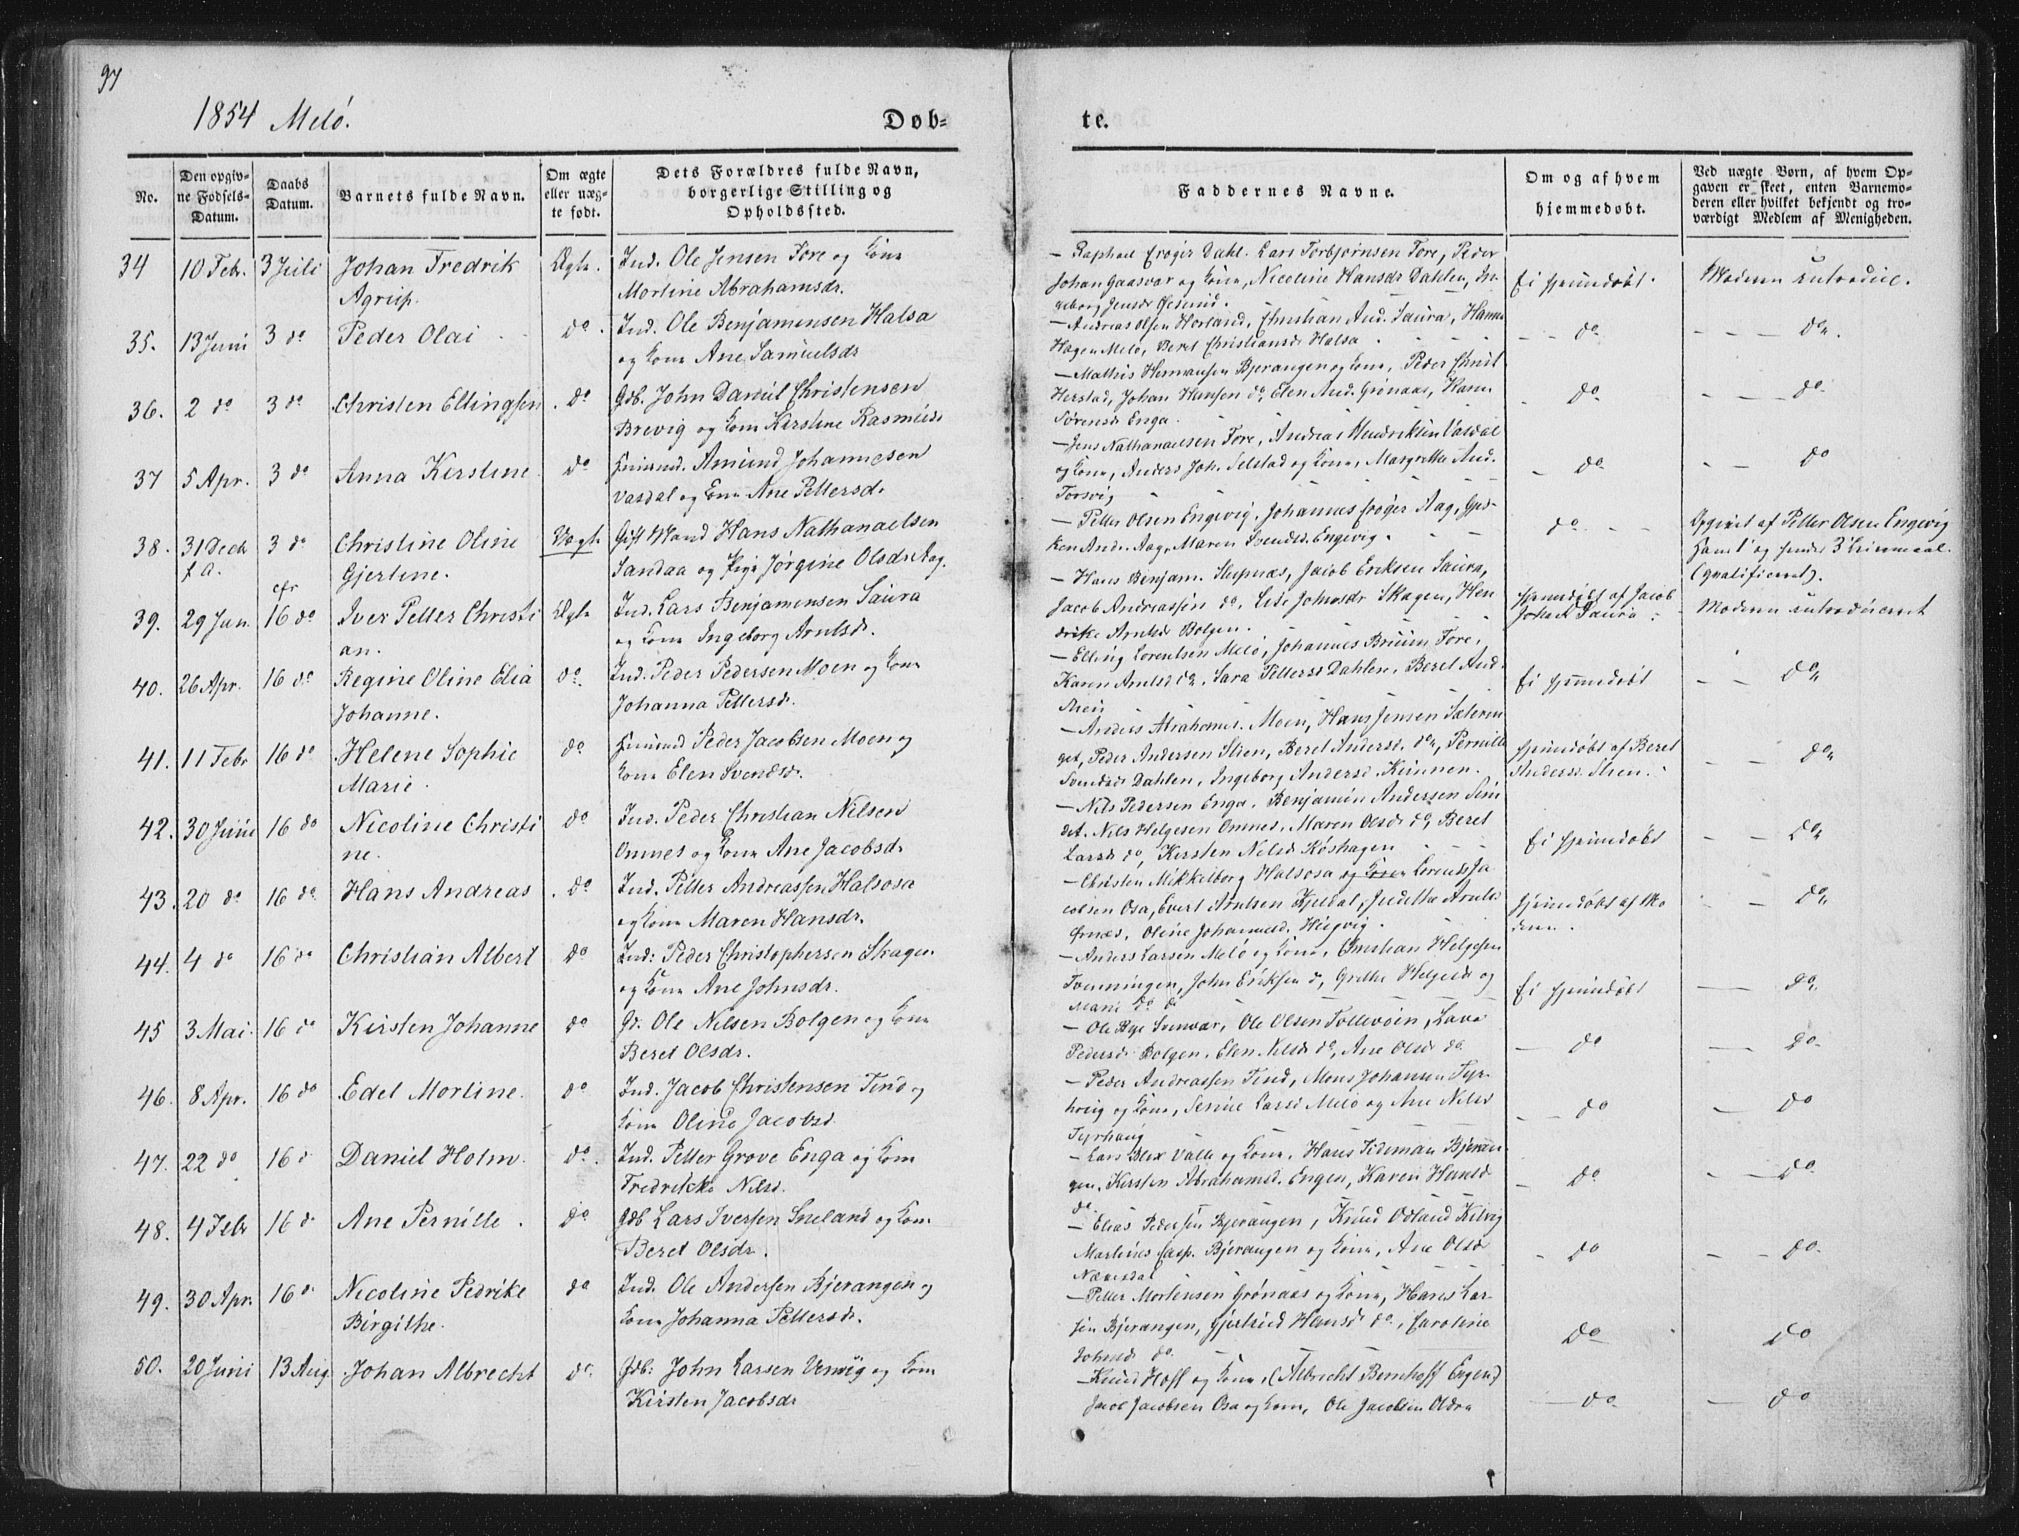 97
1854 Melö.
Døb-
te.
No.
Den opgiv-
ne Fødsels-
Datum.
Daabs
Datum.
Barnets fulde Navn.
Om ægte
eller uæg-
te født.
Dets Forældres fulde Navn,
borgerlige Stilling og
Opholdssted.
Faddernes Navne.
Om og af hvem
hjemmedøbt.
Ved uægte Børn, af hvem Op-
gaven er skeet, enten Barnemo-
deren eller hvilket bekjendt og tro-
værdigt Medlem af Menigheden.
34 10 Febr. 3 Juli Johan Fredrik
Agrup.
Ægte.
Ind. Ole Jensen Fore og Kone
Mortine Abrahamsdr.
— Raphael Crøger Dahl. Lars Torbjørnsen Fore, Peder
Johan Gaasvær og Kone, Nicoline Hansdr Dahlen, In-
geborg Jensdr
Ei hjemmedøbt.
Moderen introduc.
35. 13 Juni 3 do Peder Olai
do.
Ind. Ole Benjamensen Halsa
og Kone Ane Samuelsdr
— Andreas Olsen Horland, Christian And. Saura, Hanna
Hagen Melö, Beret Christiansdr Halsa.
— — do
— — — do.
36. 2 do 3 do Christen Ellingsen
. do
Gdb. John Daniel Christensen
Brevig og Kone Kirstine Rasmusdr
— Mathis Hermansen Bjerangen og Kone, Peder Christ
Herstad, Johan Hansen do, Elen And. Grønaas, Karen
Sørensdr Enga.
— do
— — — do
37 5 Apr. 3 do Anna Kirstine
do
Huusmd. Amund Johannesen
Vasdal og Kone Ane Pettersdr
— Jens Nathanaelsen Fore, Andreas Hendriksen Vasdal
og Kone, Anders Joh. Selstad og Kone, Margrethe And.
Torsvig
— do
— — do
38. 31 Decb 3 do Christine Oline
f. A.
Gjertine.
Uægte
Gift Mand Hans Nathanaelsen
Sandaa og Pige Jørgine Olsdr Aag.
— Petter Olsen Engevig, Johannes Crøger Aag,
ken Andr. Aag, Maren Svendsdr. Engevig.
do — —
Opgivet af Petter Olsen Engevig
(qvalificeret).
39. 29 Jan. 16 do Iver Petter Christi
an.
Ægte
Ind. Lars Benjamensen Saura
og Kone Ingeborg Arntsdr.
— Hans Benjam. Stupnæs, Jacob Eriksen Saura,
Jacob Andreassen do, Lise Johnsdr Skagen, Hen
drikke Arntsdr Bolgen.
Hjemmedøbt af Jacob
Johan Saura.
Moderen introduceret
40. 26 Apr. 16 do Regine Oline Elia
Johanne.
do.
Ind. Peder Pedersen Moen og Kone
Johanna Pettersdr.
— Elling Lorentsen Melö, Johannes Bruun Fore,
Karen Arntsdr do, Sara Pettersdr Dahlen, Beret And
Ei hjemmedøbt
— — do
41. 11 Febr 16 do Helene Sophie
Marie.
do
Huusmd Peder Jacobsen Moen og
Kone Elen Svendsdr.
— Andreas Abrahams. Moen, Hans Jensen Sæterin
get, Peder Andersen Stien, Beret Andersdr do, Pernille
Svendsdr Dahlen, Ingeborg Andersd. Kunnen.
Hjemmedøbt af Beret
Andersd. Stien.
— — do
42. 30 Juni 16 do Nicoline Christi
ne.
do
Ind. Peder Christian Nilsen
Omnes og Kone Ane Jacobsdr
— Nils Pedersen Enga. Benjamin Andersen Sun
det. Nils Helgesen Omnes. Maren Olsdr do, Beret
Larsdr do, Kirsten Nilsd Røshagen
Ei hjemmedøbt
— — do
43. 20 do 16 do Hans Andreas
. do
Ind. Petter Andreassen Halsosa
og Kone Maren Hansdr.
— Christen Mikkelborg Halsosa og Kone Lorents Ja
cobsen Osa, Evert Arntsen Kjeldal, Judithe Arnts
Ørnæs, Oline Johannesd.
Hjemmedøbt af Mo
deren.
— — do
44. 4 do 16 do Christian Albert
do
Ind: Peder Christophersen Skagen
og Kone Ane Johnsdr.
— Anders Larsen Melö og Kone, Christian Helgesen
Tvenningen, John Eriksen do, Grethe Helgesdr og
Marie do do
Ei hjemmedøbt
— do
45 3 Mai. 16 do Kirsten Johanne
do
Gr. Ole Nilsen Bolgen og Kone
Beret Olsdr.
— Ole Svenvær, Ole Olsen
Pedersdr Bolgen, Elen Nilsdr do, Ane Olsdr do.
— do
— do
46. 8 Apr. 16 do Edel Mortine.
do
Ind. Jacob Christensen Tind og
Kone Oline Jacobsd.
— Peder Andreassen Tind, Mons Johansen Tyr-
houg og Kone, Serine Larsd Melö og Ane Nilsd
Tyrhaug
— do
— do
47. 22 do 16 d Daniel Holm.
do.
Ind. Petter Grove Enga og Kone
Fredrikke Nilsd.
— Lars Blix Valle og Kone, Hans Tideman Bjeran-
gen, Kirsten Abrahamsd. Engen, Karen Hansd
do.
— do
— — do
48. 4 Febr 16 d Ane Pernille.
do
Gdb Lars Iversen Sneland og Kone
Beret Olsdr.
— Elias Pedersen Bjerangen, Knud Odland Kilvig
Martinus Casp. Bjerangen og Kone, Ane Olsdr
— do
— — do.
49. 30 Apr. 16 d. Nicoline Pedrike
Birgithe.
do
Ind. Ole Andersen Bjerangen og
Kone Johanna Pettersdr.
— Petter Mortensen Grønaas og Kone, Hans Lar-
sen Bjerangen, Gjertrud Hansdr do, Caroline
Johnsdr do.
do
do
50. 20 Juni 13 Aug Johan Albrecht
do.
Gdb: John Larsen Venvig og Kone
Kirsten Jacobsdr
— Knud Hoff og Kone, (Albrecht Bernhoff Engen)
Jacob Jacobsen Osa og Kone, Ole Jacobsen Oldra
— do
— do